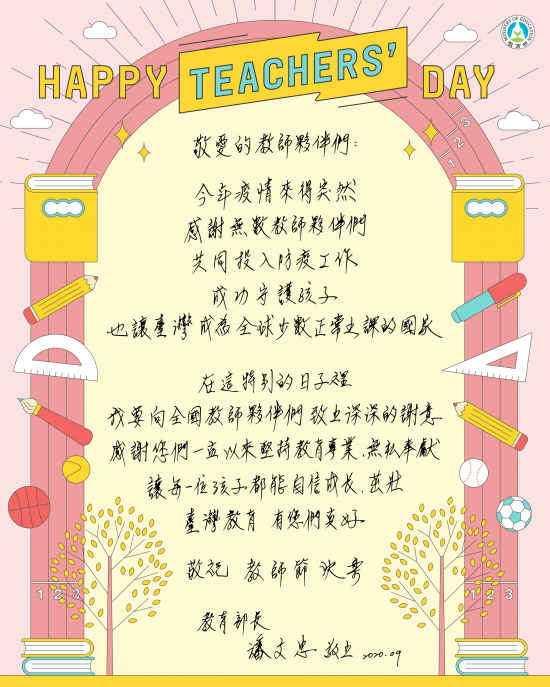 HAPPY TEACHERS' DAY
MINISTRY OF EDUCATION
教育部
3
2
1
敬愛的教師夥伴們：
今年疫情來得突然
感謝無數教師夥伴們
共同投入防疫工作
成功守護孩子
也讓臺灣成為全球少數正常上課的國家
在這特別的日子裡
我要向全國教師夥伴們致上深深的謝意
感謝您們一直以來堅持教育專業、無私奉獻
讓每一位孩子都能自信成長、茁壯
臺灣教育 有您們真好
敬祝 教師節快樂
教育部長
潘文忠 敬上 2020.09
1 2 3
1 2 3